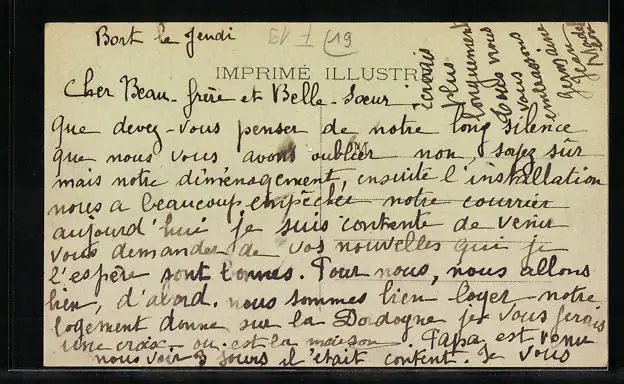 Bort le Jeudi
19
IMPRIMÉ ILLUSTR
Cher Beau-frère et Belle-Sœur
que devez-vous penser de notre long silence
que nous vous avons oublier non, soyez sûr
mais notre déménagement, ensuite l'installation
nous a beaucoup empêcher notre courrier
aujourd'hui je suis contente de venir
vous demander de vos nouvelles que je
l'espère sont bonnes. Pour nous, nous allons
bien, d'abord. nous sommes bien loger notre
logement donne sur la Dordogne je vous ferais
une croix. ou est la maison. Papa est venu
nous voir 3 jours il était content. Je vous
écrirais
plus
longuement
tous nous
vous
embrassons